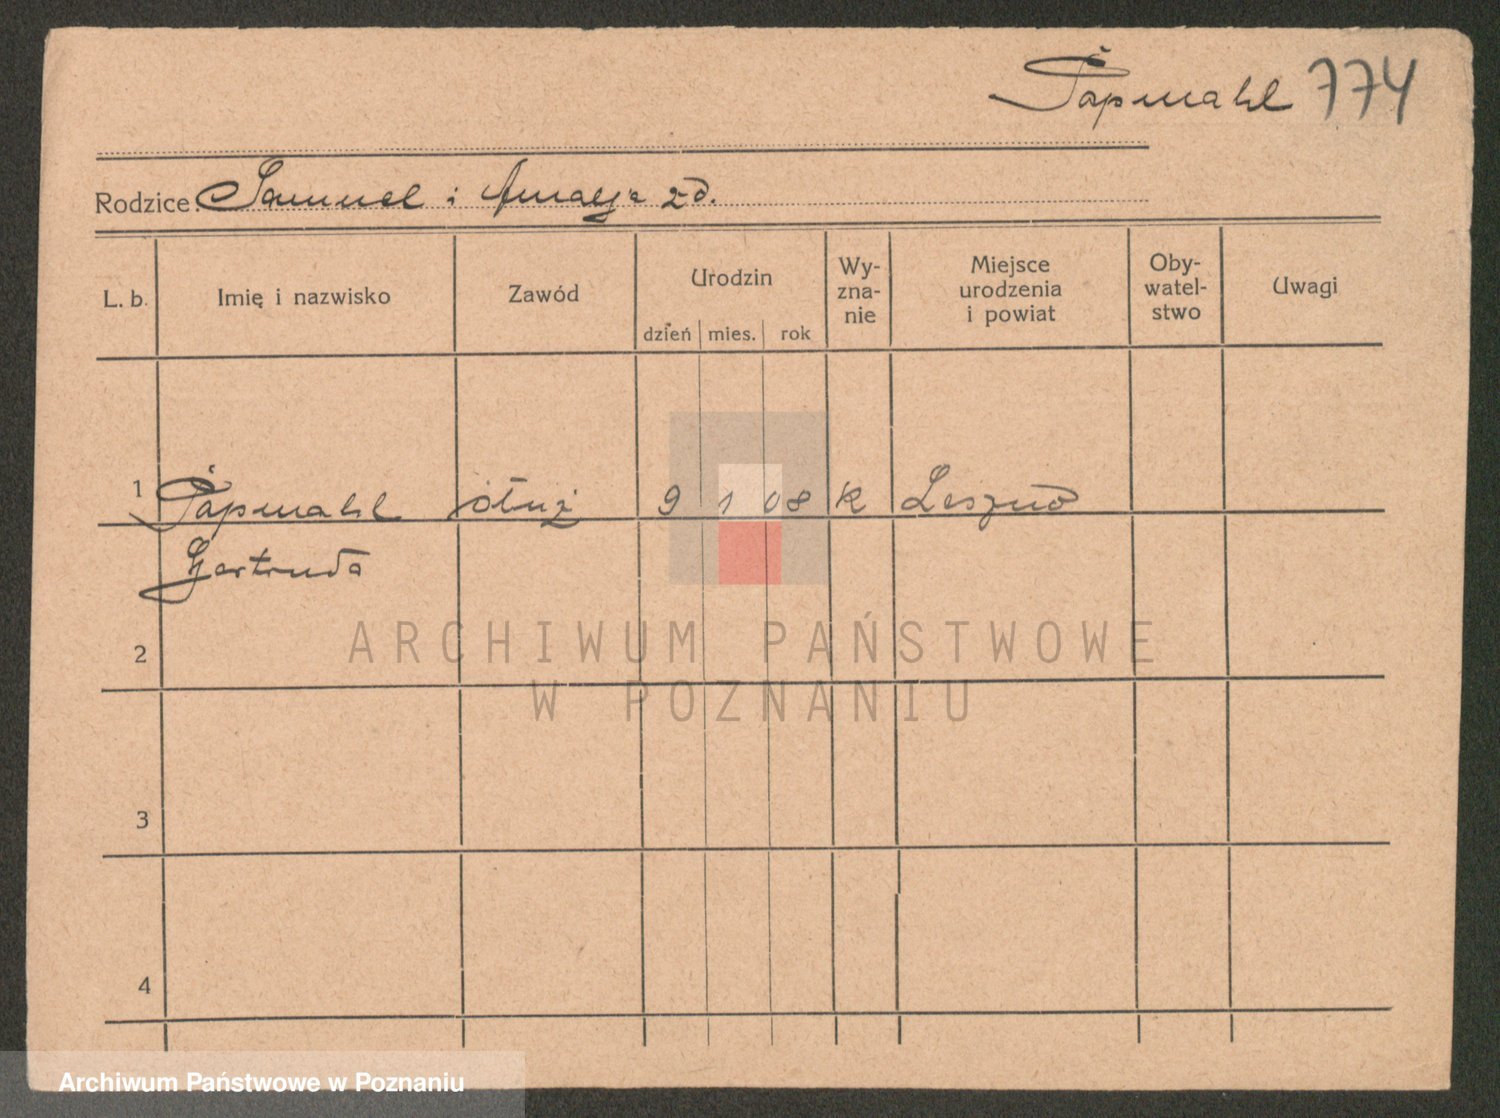 Papmahl 774
Rodzice: Samuel i Amalja zd.
L. b. Imię i nazwisko Zawód Urodzin dzień mies. rok Wy-zna-nie Miejsce urodzenia i powiat Oby-watel-stwo Uwagi
1 Papmahl służ 9 1 08 k Leszno
Gertruda
2
ARCHIWUM PAŃSTWOWE
W POZNANIU
3
4
Archiwum Państwowe w Poznaniu